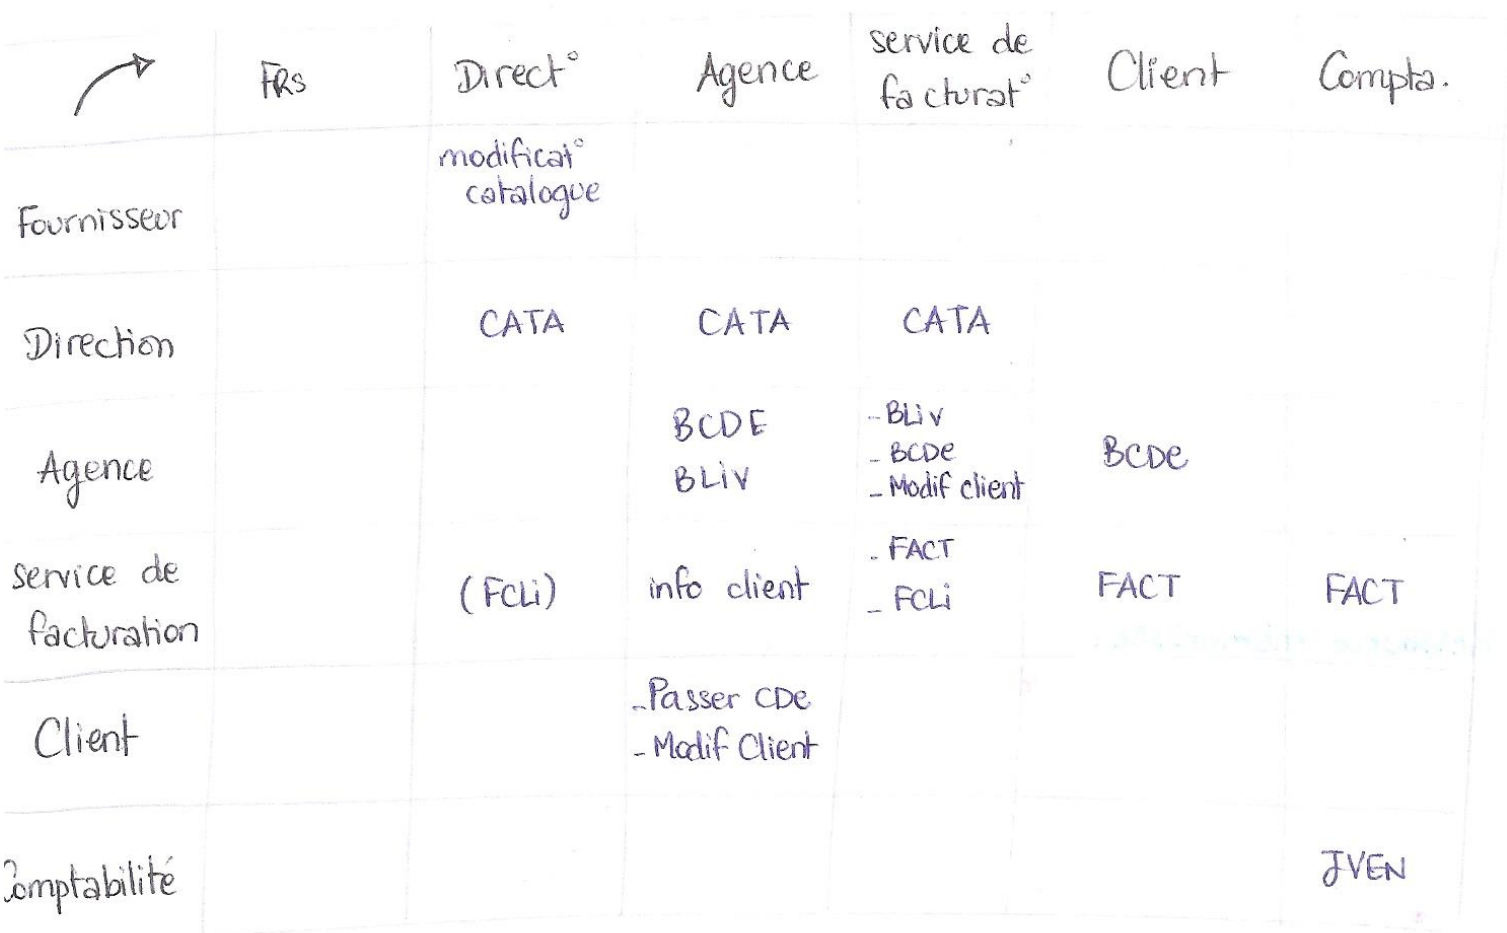 FRS Direct° Agence service de facturat° Client Compta.
modificat°
catalogue
Fournisseur
Direction CATA CATA CATA
Agence BCDE BLiV - BLiv - BCDe - Modif client BCDe
service de facturation (FCLi) info client - FACT - FCLi FACT FACT
Client - Passer CDe - Modif Client
Comptabilité JVEN